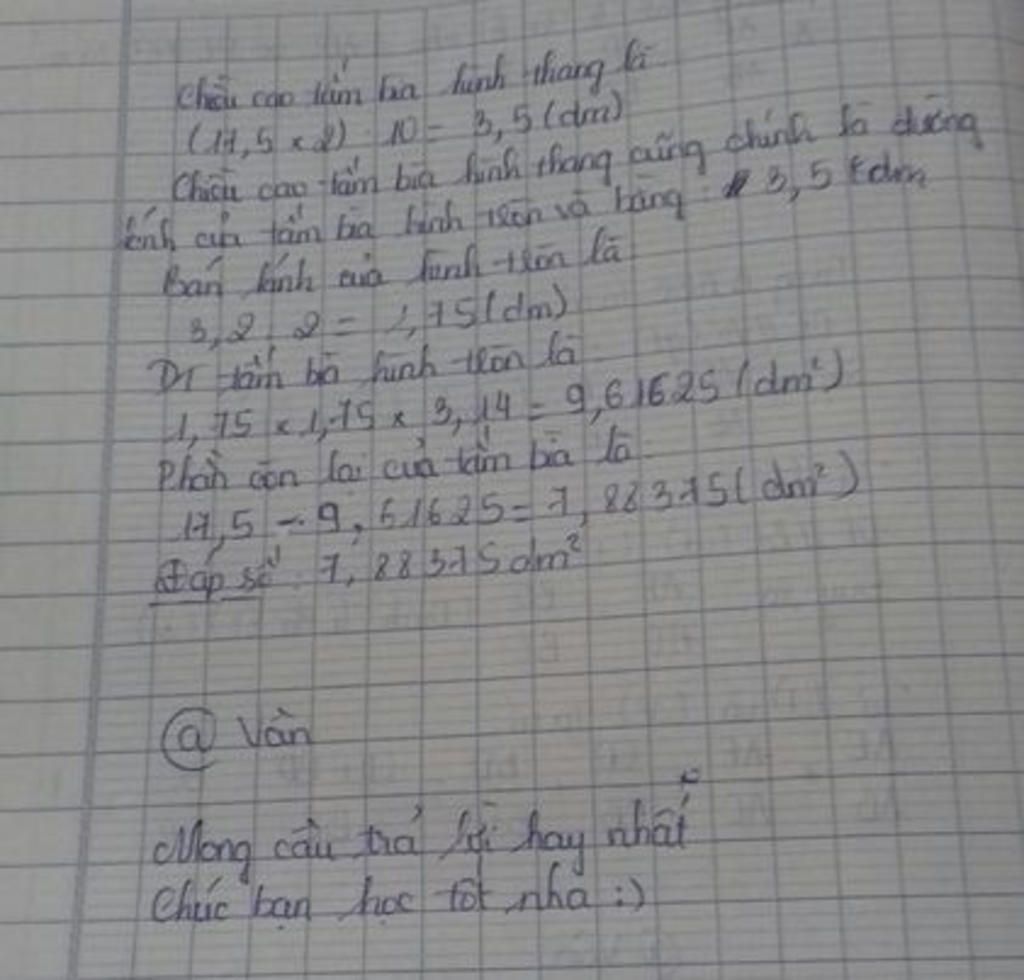 Chiều cao tấm bìa hình thang là
(17,5 × 2) : 10 = 3,5 (dm)
Chiều cao tấm bìa hình thang cũng chính là đường
kính của tấm bìa hình tròn và bằng : 3,5 dm
Bán kính của hình tròn là
3,2 : 2 = 1,75 (dm)
DT tấm bìa hình tròn là
1,75 × 1,75 × 3,14 = 9,61625 (dm²)
Phần còn lại của tấm bìa là
17,5 - 9,61625 = 7,88375 (dm²)
Đáp số : 7,88375 dm²
@ Vân
Mong câu trả lời hay nhất
Chúc bạn học tốt nha :)